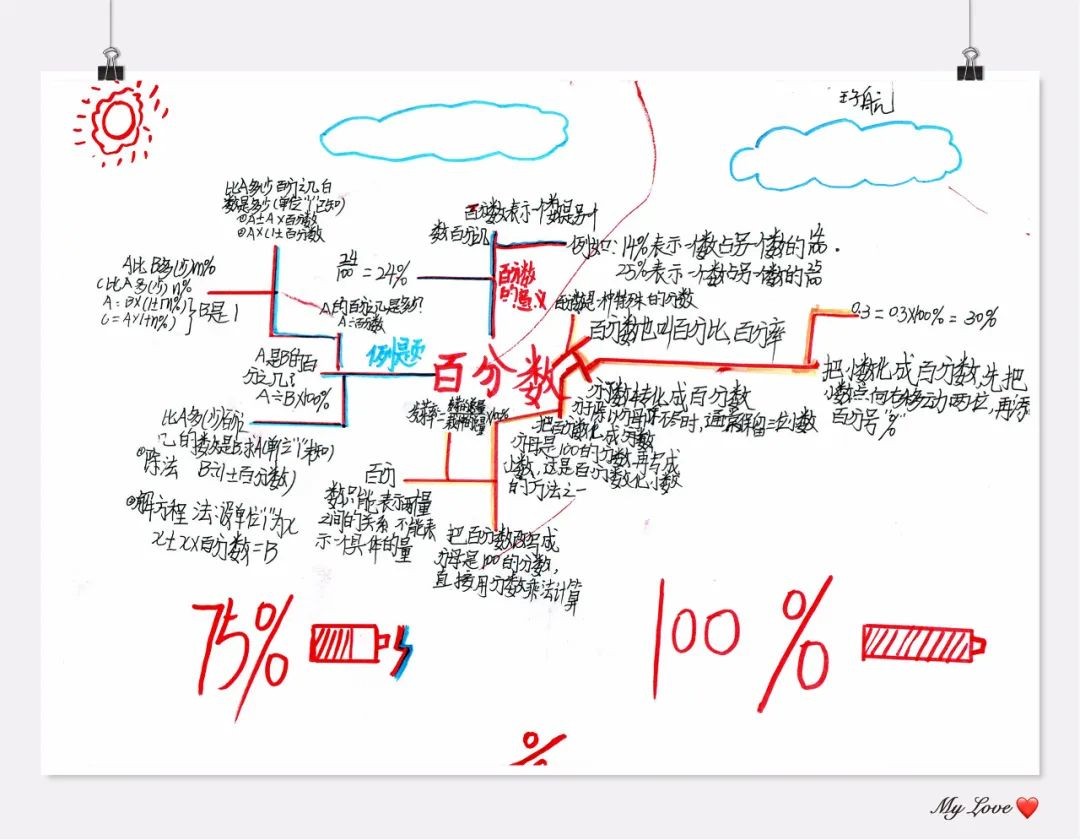 航
比A多(少)百分之几的
数是多少(单位"1"已知)
①A±A×百分数
②A×(1±百分数)
A比B多(少)m%
C比A多(少)n%
A=B×(1±m%)
C=A×(1±n%)
}B是1
A的百分之几是多少?
A×百分数
例题
A是B的百
分之几?
A÷B×100%
比A多(少)百分之
几的数是B,求A(单位"1"未知)
①除法 B÷(1±百分数)
②解方程法:设单位"1"为x
x±x×百分数=B
24/100=24%
百分数表示一个数是另一个
数百分几
百分数
的意义
例如:14%表示一个数占另一个数的14/100.
25%表示一个数占另一个数的25/100
百分数是一种特殊的分数
百分数也叫百分比,百分率
百分数
0.3=0.3×100%=30%
把小数化成百分数,先把
小数点向右移动两位,再添
百分号"%"
分数转化成百分数
分子除以分母除不尽时,通常保留三位小数
把百分数化成小数
分母是100的分数,再写成
小数,这是百分数化小数
的方法之一
×100%
百分
数只能表示两量
之间的关系,不能表
示一个具体的量
把百分数改写成
分母是100的分数,
直接用分数乘法计算
75%
100%
%
My Love